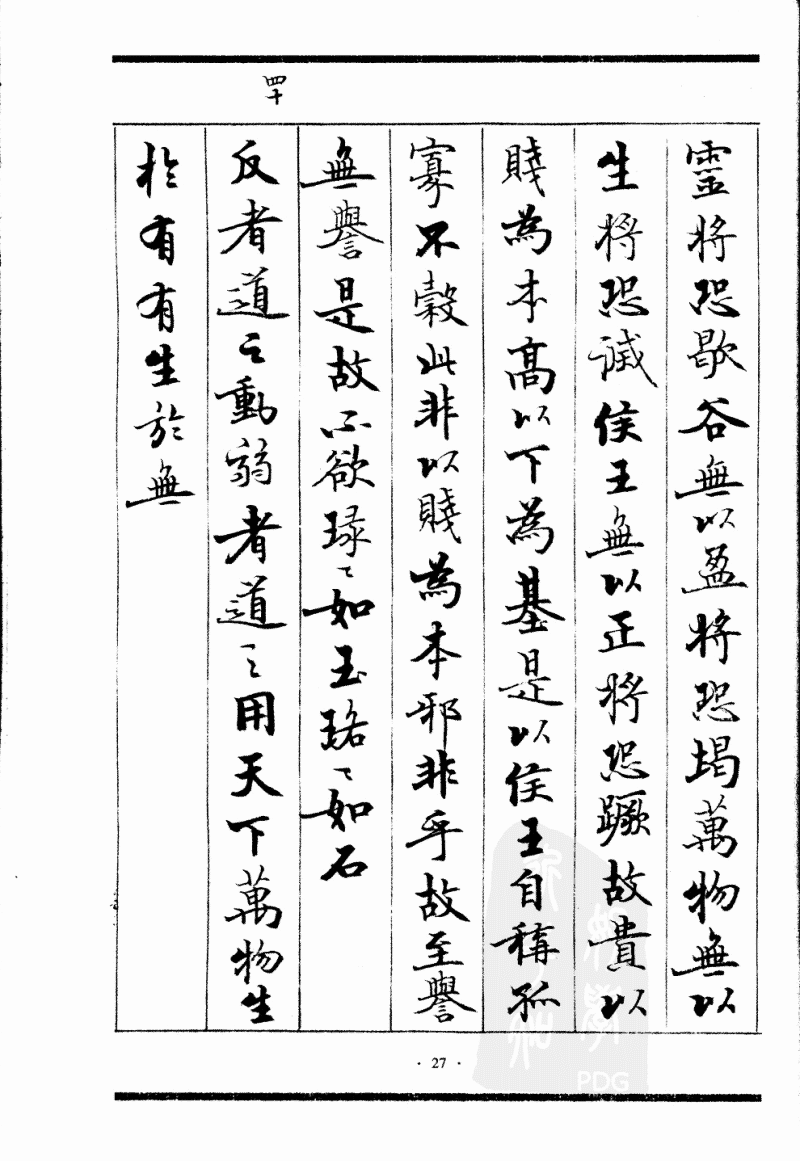 四十
靈將恐歇谷無以盈將恐竭萬物無以
生將恐滅侯王無以正將恐蹶故貴以
賤為本高以下為基是以侯王自稱孤
寡不穀此非以賤為本邪非乎故至譽
無譽是故不欲琭々如玉珞々如石
反者道之動弱者道之用天下萬物生
於有有生於無
· 27 ·
PDG